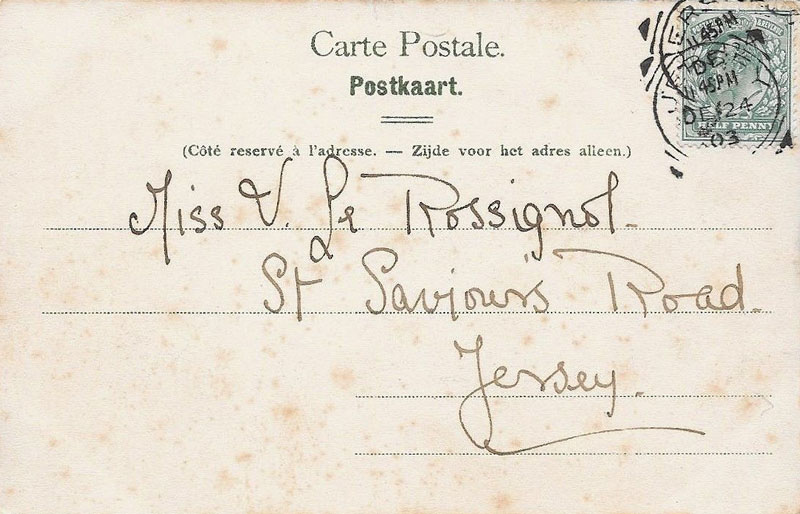 Carte Postale.
Postkaart.
(Côté reservé à l'adresse. — Zijde voor het adres alleen.)
Miss V. Le Rossignol.
St Saviour's Road.
Jersey.
JERSEY
11 45PM
DE 24
03
HALF PENNY